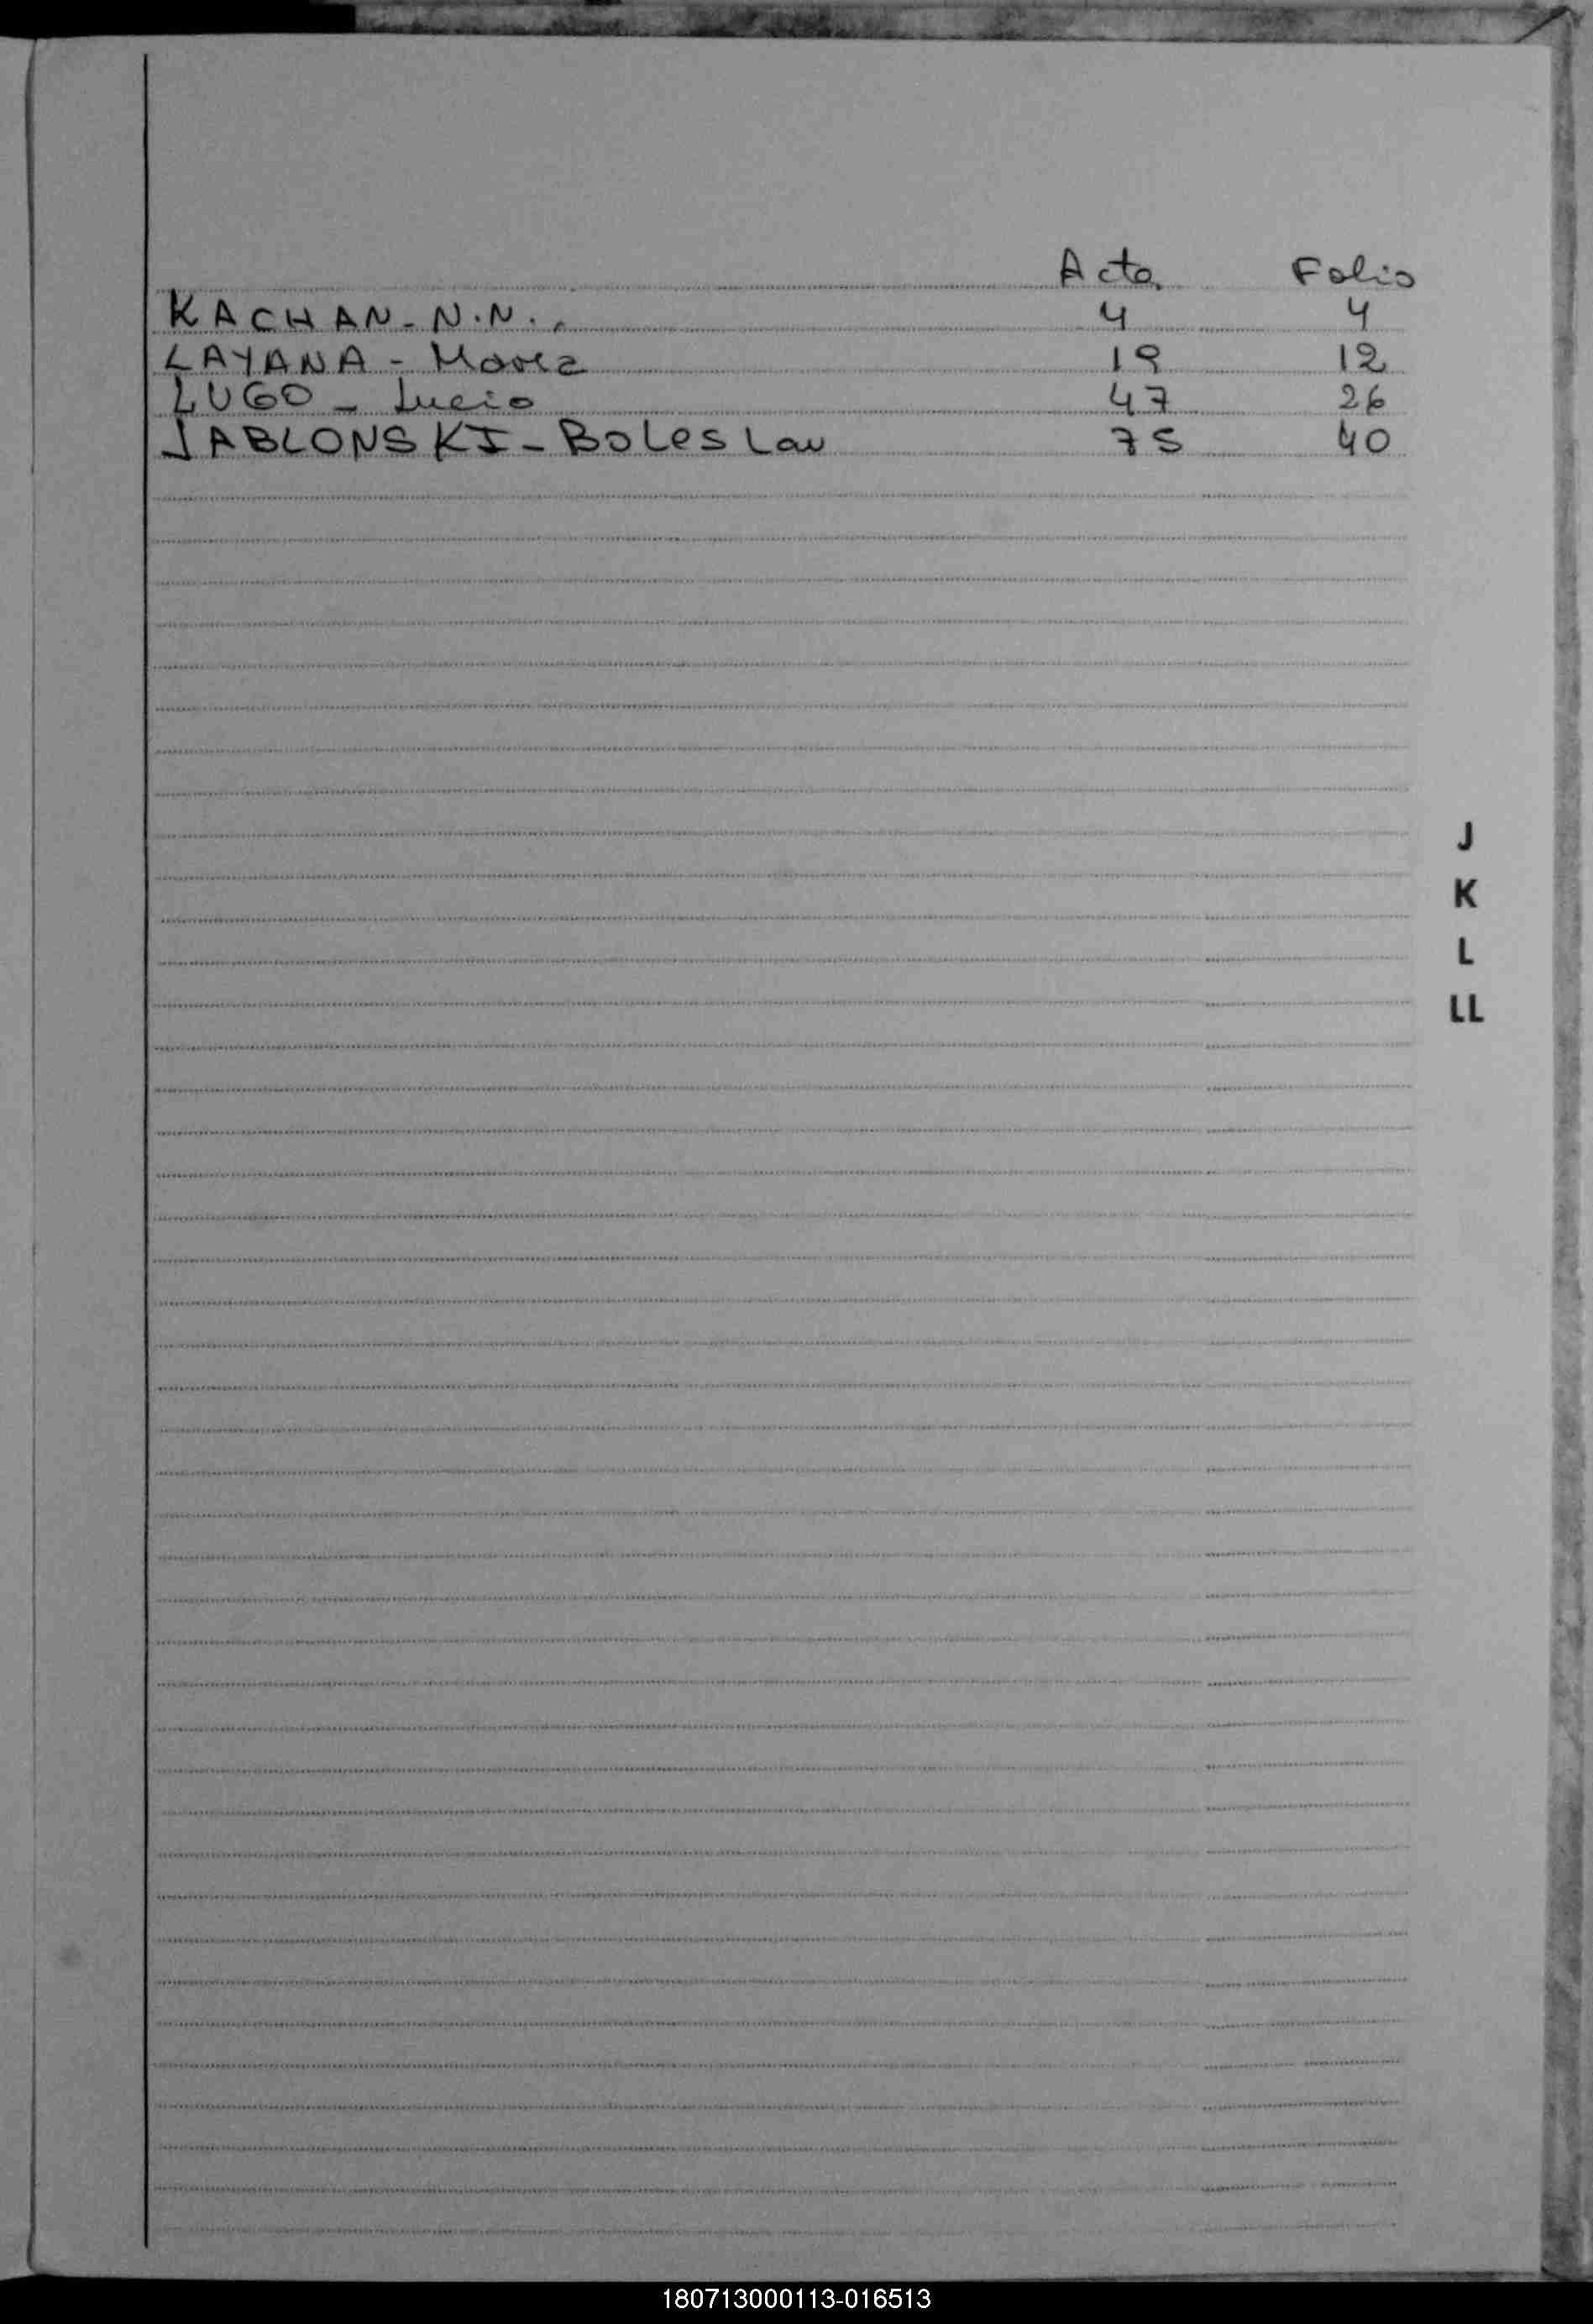 Acta Folio
KACHAN - N.N. 4 4
LAYANA - 19 12
LUGO - Lucio 47 26
JABLONSKI - Boleslau 75 40
J
K
L
LL
180713000113-016513